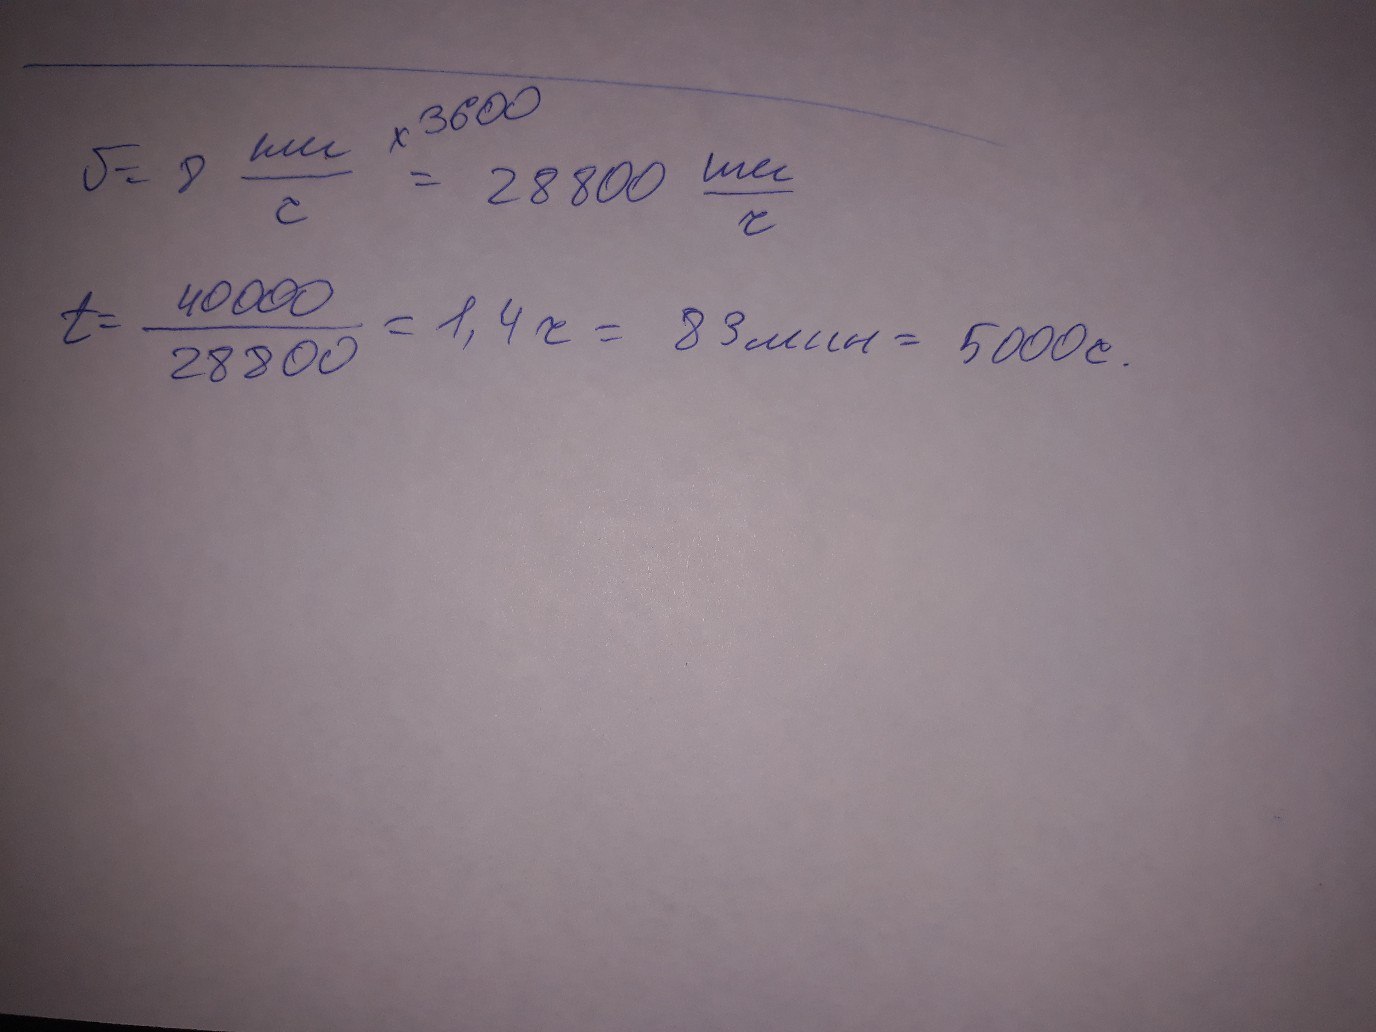 v = 8 км/с x3600 = 28800 км/ч
t = 40000/28800 = 1,4 ч = 83 мин = 5000 с.